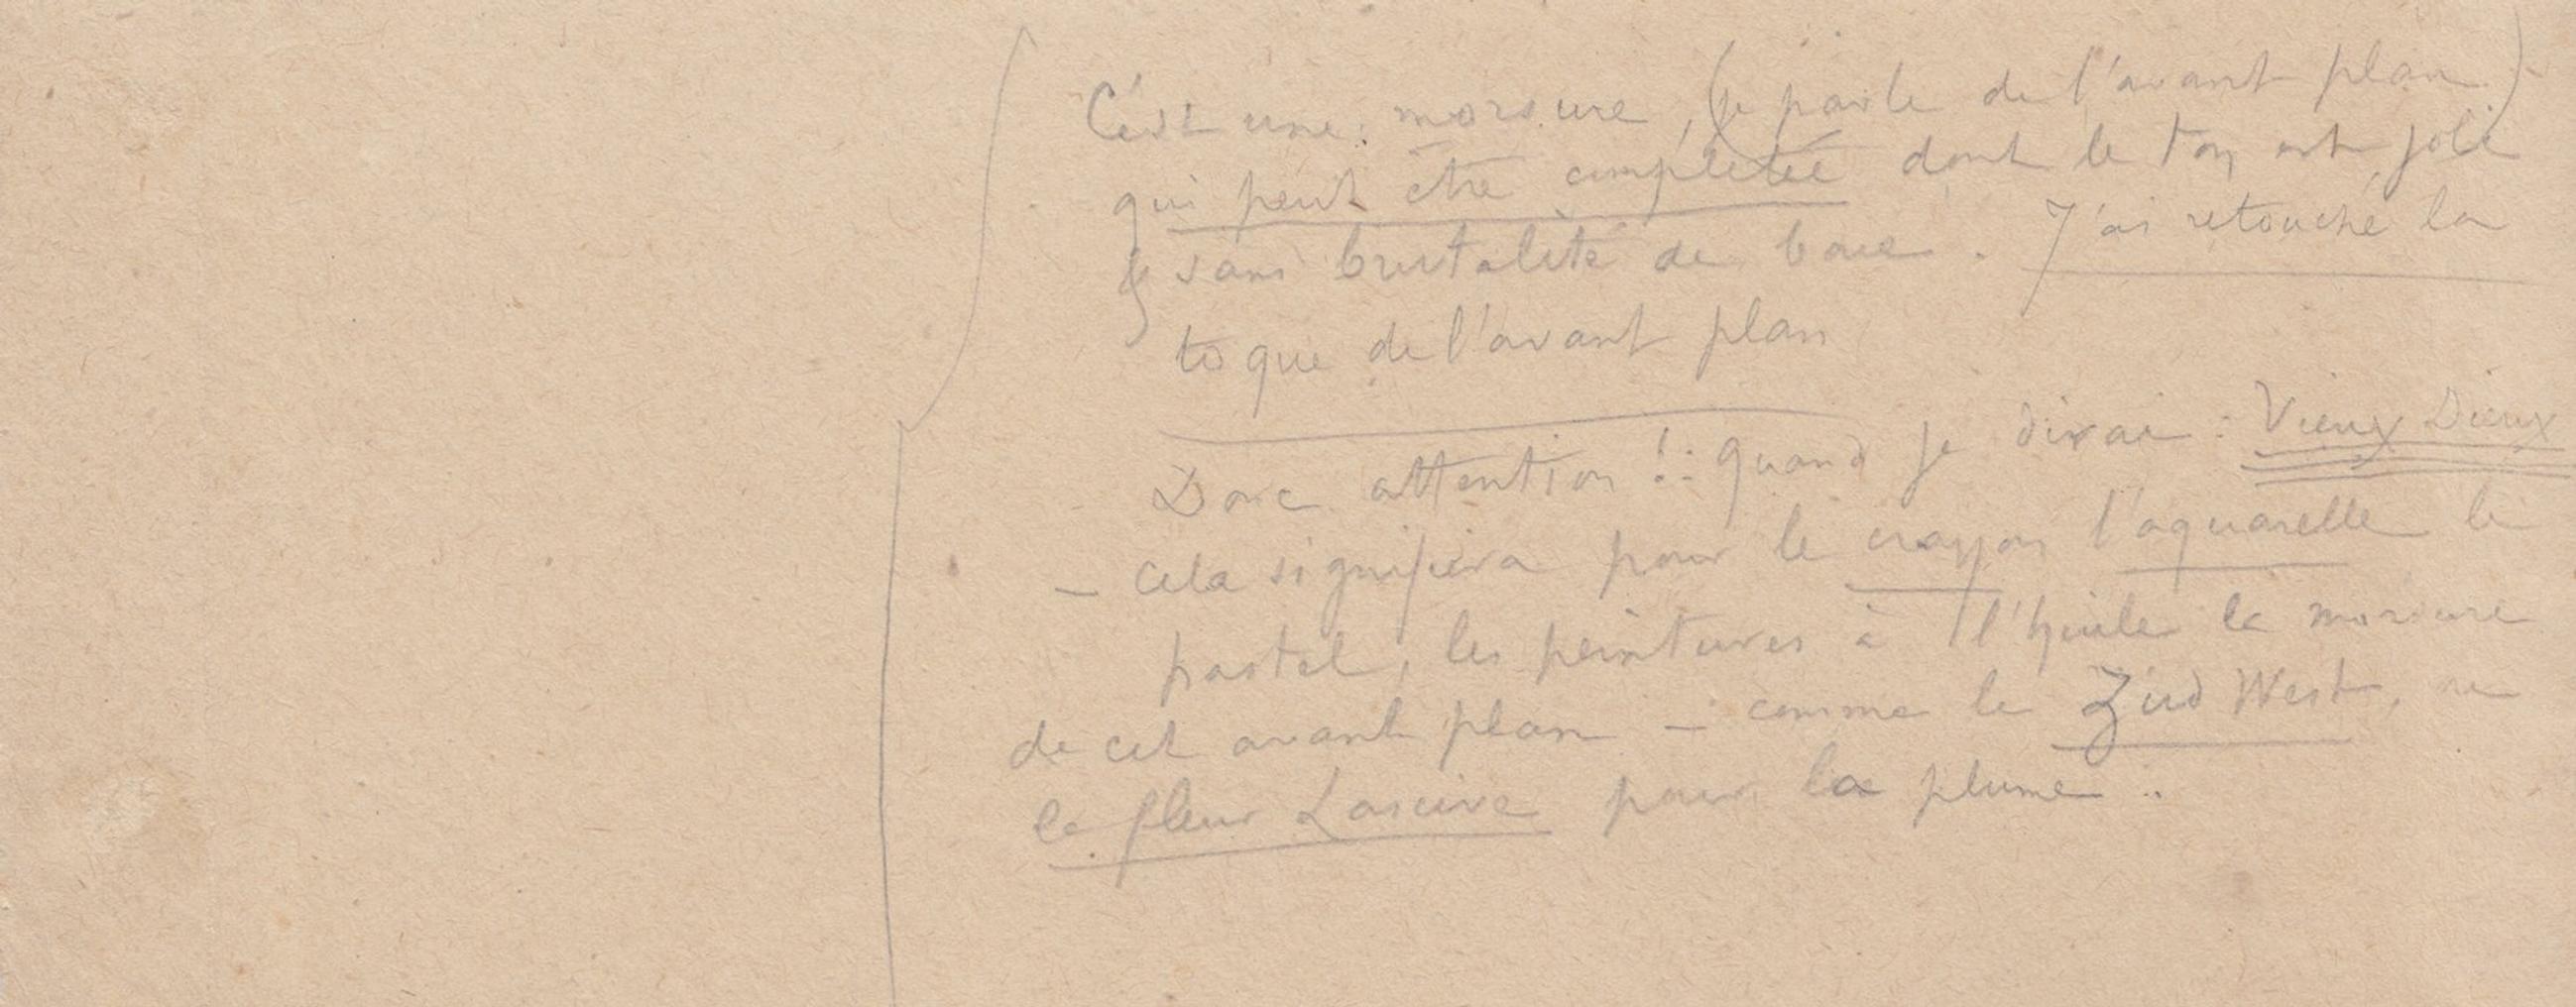 C'est une morsure, (je parle de l'avant plan)
qui peut être complétée dont le ton est joli
& sans brutalité de base. J'ai retouché la
toque de l'avant plan
Donc attention !: quand je dirai : Vieux Dieux
– cela signifiera pour le crayon l'aquarelle le
pastel, les peintures à l'huile la morsure
de cet avant plan – comme le Zuid West,
la fleur Lascive pour la plume ..